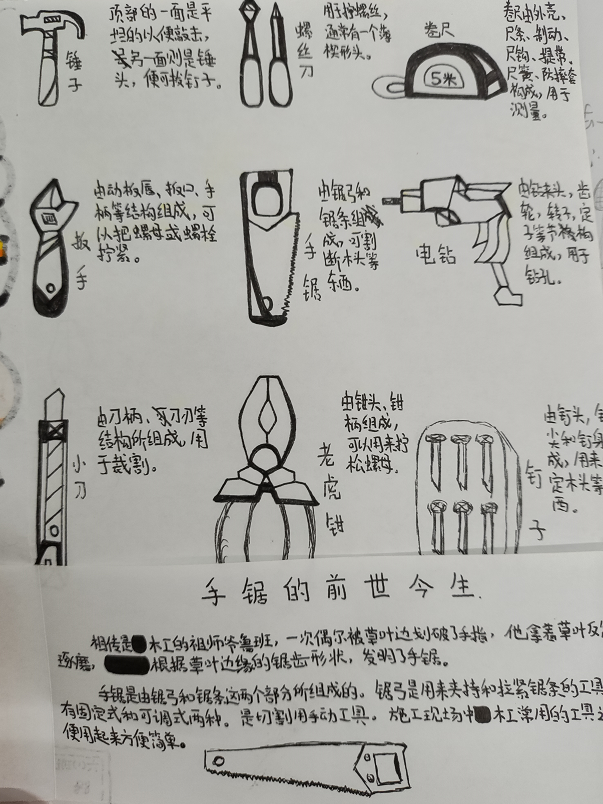 顶部的一面是平
坦的以便敲击,
另一面则是锤
头,便可拔钉子。
锤子
用于拧螺丝,
通常有一个薄
楔形头。
螺丝刀
卷尺
5米
卷尺由外壳、
尺条、制动、
尺钩、提带、
尺簧、防摔套
构成,用于
测量。
由动板唇、扳口、手
柄等结构组成,可
以把螺母或螺栓
拧紧。
扳手
由锯弓和
锯条组成
成,可割
断木头等
东西。
手锯
电钻
由钻夹头,齿
轮,转子,定
子等节被构
组成,用于
钻孔。
由刀柄、刀刃等
结构所组成,用
于裁割。
小刀
由钳头、钳
柄组成,
可以用来拧
松螺母。
老虎钳
由钉头,钉
尖和钉身
成,用来
定木头等
西。
钉子
手锯的前世今生.
相传是木工的祖师爷鲁班,一次偶尔被草叶边划破了手指,他拿着草叶反
琢磨,根据草叶边缘的锯齿形状,发明了手锯。
手锯是由锯弓和锯条这两个部分所组成的。锯弓是用来夹持和拉紧锯条的工具
有固定式和可调式两种。是切割用手动工具。施工现场中木工常用的工具
使用起来方便简单。